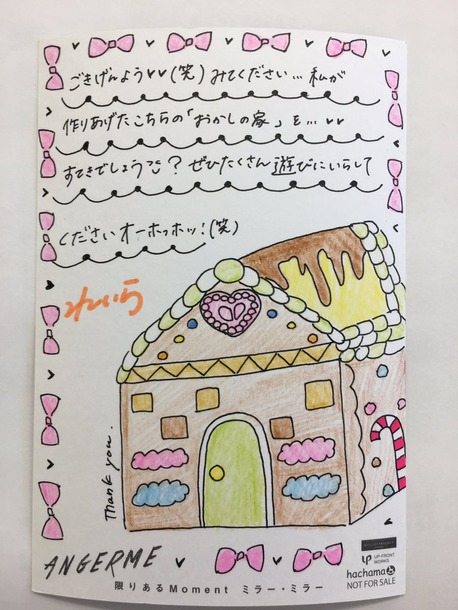 ごきげんよう♥♥(笑)みてください…私が
作りあげたこちらの「おかしの家」を…♥♥
すてきでしょう？ぜひたくさん遊びにいらして
くださいオーホっホッ!(笑)
Thank you.
ANGERME
限りあるMoment ミラー・ミラー
UP-FRONT WORKS
hachama
NOT FOR SALE